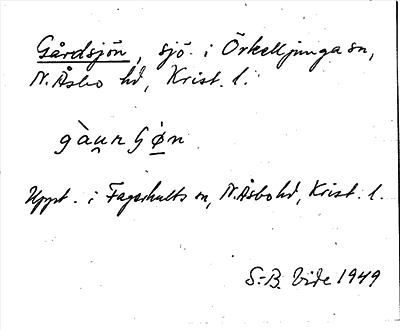 Gårdsjön, sjö i Örkelljunga sn,
N. Åsbo hd, Krist. l.
gàu̯nʃø̀n
Uppt. i Fagerhults sn, N. Åsbo hd, Krist. l.
S.-B. Vide 1949